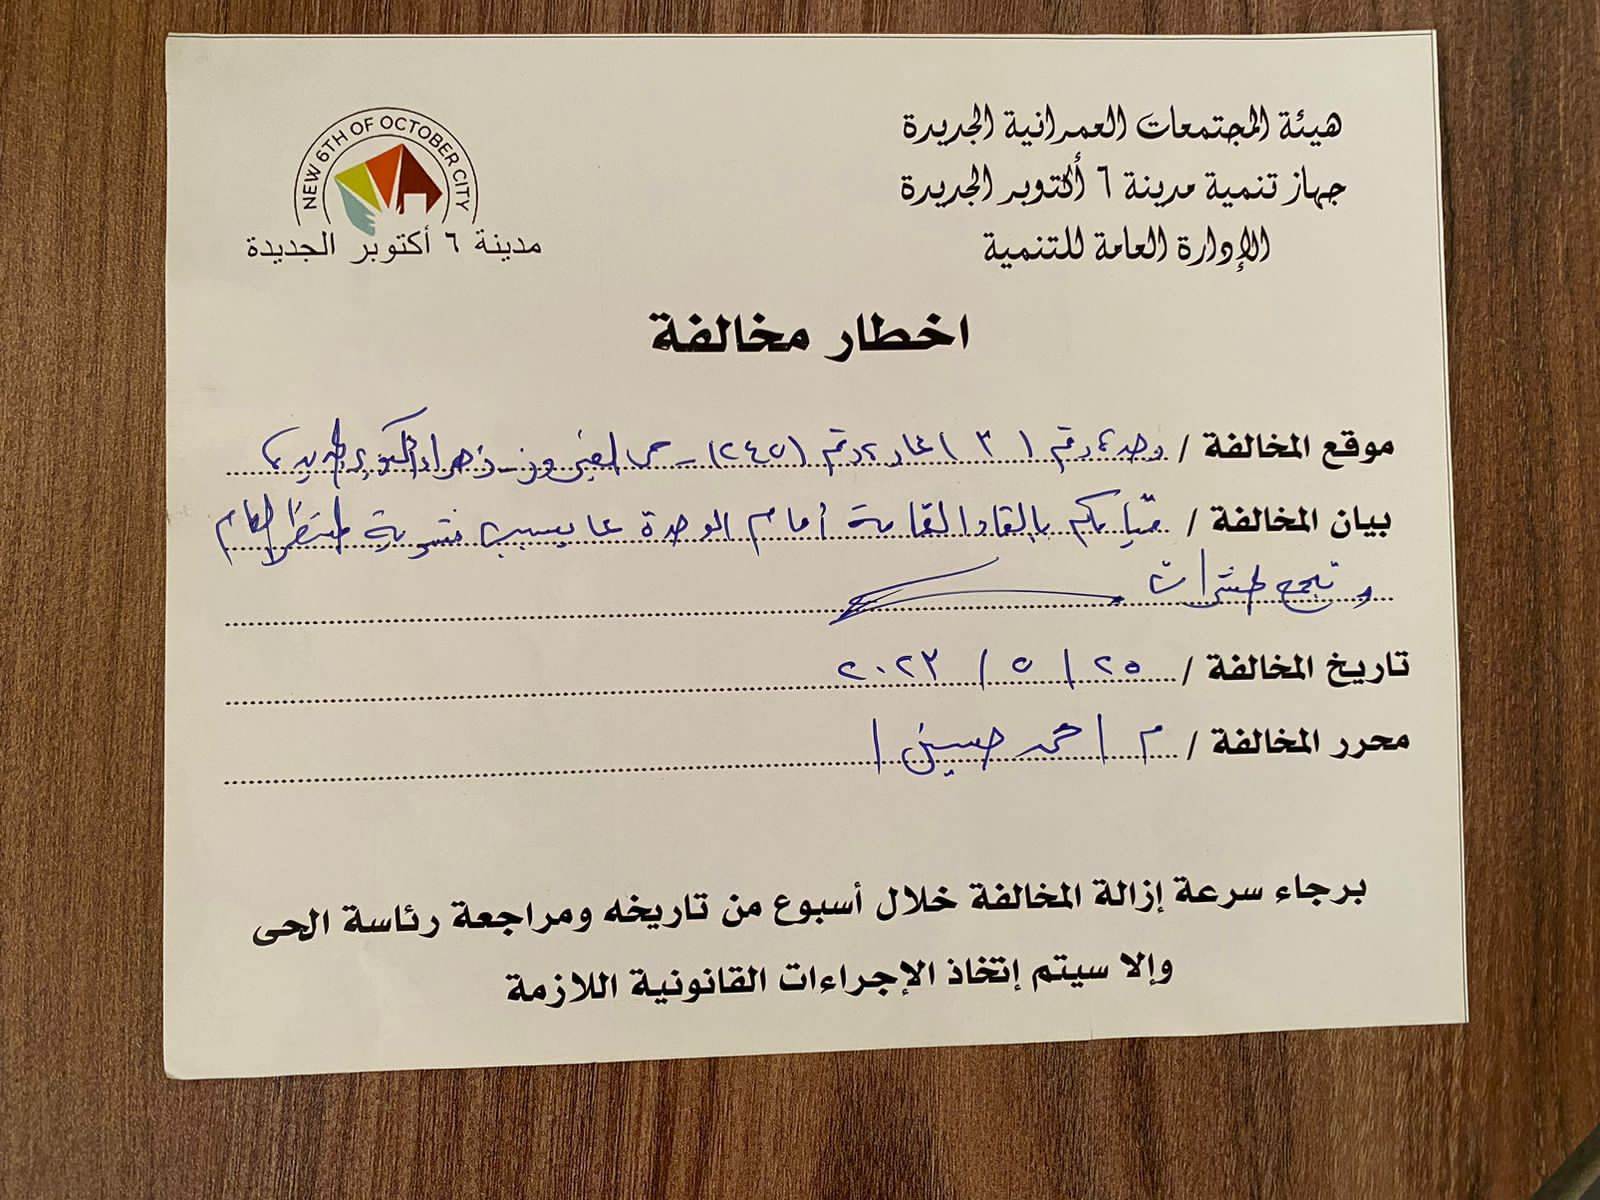 هيئة المجتمعات العمرانية الجديدة
جهاز تنمية مدينة ٦ أكتوبر الجديدة
الإدارة العامة للتنمية
NEW 6TH OF OCTOBER CITY
مدينة ٦ أكتوبر الجديدة
اخطار مخالفة
موقع المخالفة / وحدة رقم (٣) عمارة رقم (٢٤٥) - حى
بيان المخالفة / قيامكم بالقاء القمامة أمام الوحدة مما يسبب المنظر العام
وتجمع الحشرات
تاريخ المخالفة / ٢٥ / ٥ / ٢٠٢٣
محرر المخالفة / م / احمد حسين /
برجاء سرعة إزالة المخالفة خلال أسبوع من تاريخه ومراجعة رئاسة الحى
وإلا سيتم إتخاذ الإجراءات القانونية اللازمة